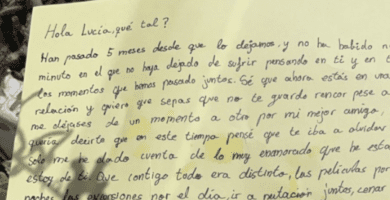 Hola Lucía, qué tal?
Han pasado 5 meses desde que lo dejamos, y no ha habido
minuto en el que no haya dejado de sufrir pensando en ti y en
los momentos que hemos pasado juntos. Sé que ahora estás en una
relación y quiero que sepas que no te guardo rencor pese a
me dejases de un momento a otro por mi mejor amigo,
quería decirte que en este tiempo pensé que te iba a olvidar
solo me he dado cuenta de lo muy enamorado que he esta
estoy de ti. Que contigo todo era distinto, las películas por
noches las excursiones por el día, ir a natación juntos, cenar